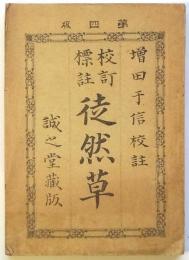 第四版
増田于信校註
校訂
標註
徒然草
誠之堂蔵版